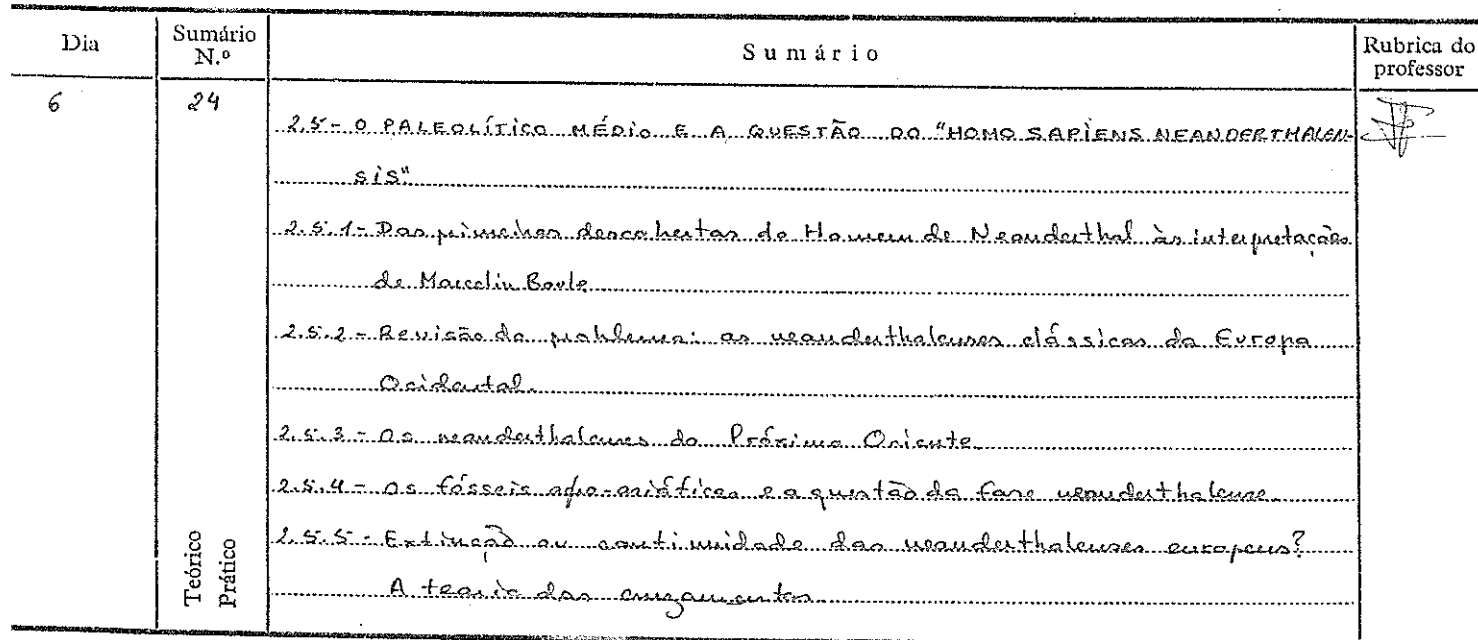 Dia
Sumário
N.º
Sumário
Rubrica do
professor
6
24
2.5- O PALEOLÍTICO MÉDIO E A QUESTÃO DO "HOMO SAPIENS NEANDERTHALEN-
SIS"
2.5.1- Das primeiras descobertas do Homem de Neanderthal às interpretações
de Marcelin Boule
2.5.2- Revisão do problema: os neanderthalenses clássicos da Europa
Ocidental.
2.5.3- Os neanderthalenses do Próximo Oriente
2.5.4- Os fósseis afro-asiáticos e a questão da fase neanderthalense.
2.5.5- Extinção ou continuidade dos neanderthalenses europeus?
A teoria dos cruzamentos
Teórico
Prático